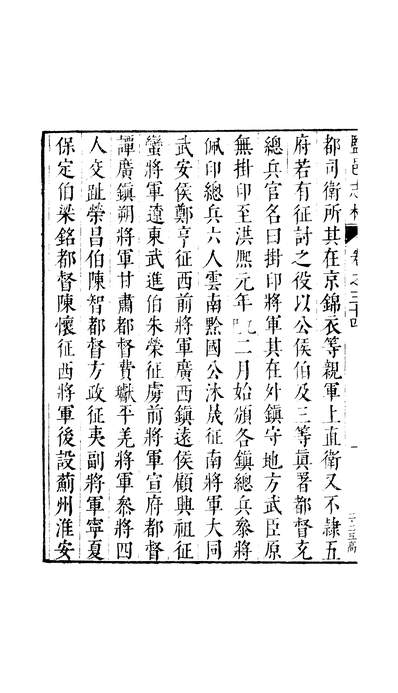 卷之三十四
都司衛所其在京錦衣等親軍上直衛又不隸五
府若有征討之役以公侯伯及三等眞署都督充
總兵官名曰掛印將軍其在外鎮守地方武臣原
無掛印至洪熙元年二月始頒各鎮總兵叅將
佩印總兵六人雲南黔國公沐晟征南將軍大同
武安侯鄭亨征西前將軍廣西鎮遠侯顧興祖征
蠻將軍遼東武進伯朱榮征虜前將軍宣府都督
譚廣鎮朔將軍甘肅都督費瓛平羌將軍叅將四
人交趾榮昌伯陳智都督方政征夷副將軍寧夏
保定伯梁銘都督陳懷征西將軍後設薊州淮安